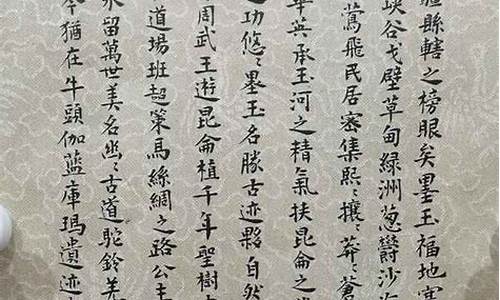 疆縣轄之榜眼矣墨玉福地寶
峽谷戈壁草甸綠洲蔥欝沙海
鶯飛民居密集熙〻攘〻莽〻蒼
華英承玉河之精氣扶昆侖之
之功悠〻墨玉名勝古迹夥自然
周武王遊昆侖植千年聖樹
道場班超策馬絲綢之路公主
永留萬世美名幽〻古道駝鈴羌
今猶在牛頭伽藍庫瑪遺迹